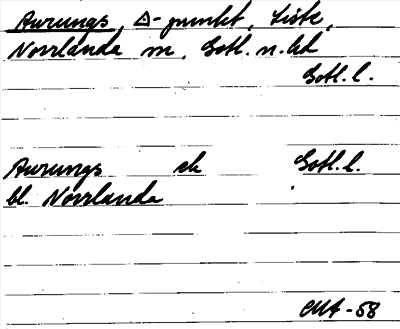 Aurungs, Δ-punkt, Liste,
Norrlanda sn, Gotl. n. hd
Gotl. l.
Aurungs ek Gotl. l.
bl. Norrlanda
CMA-58